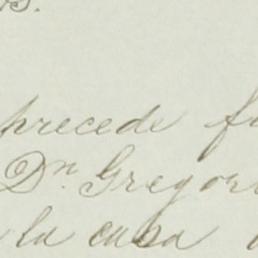 s.
precede
Dn Gregori
la casa